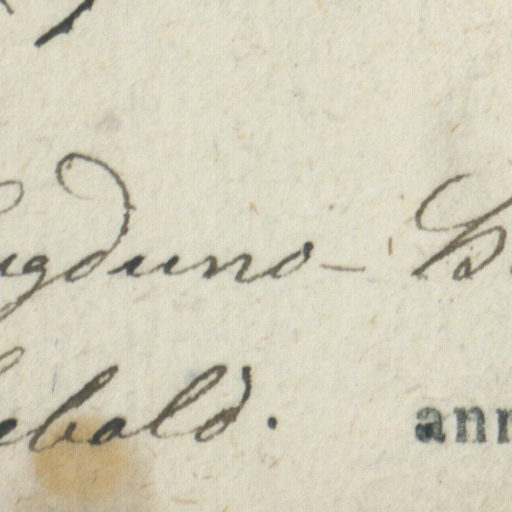 ugduno-
ebold.
ann